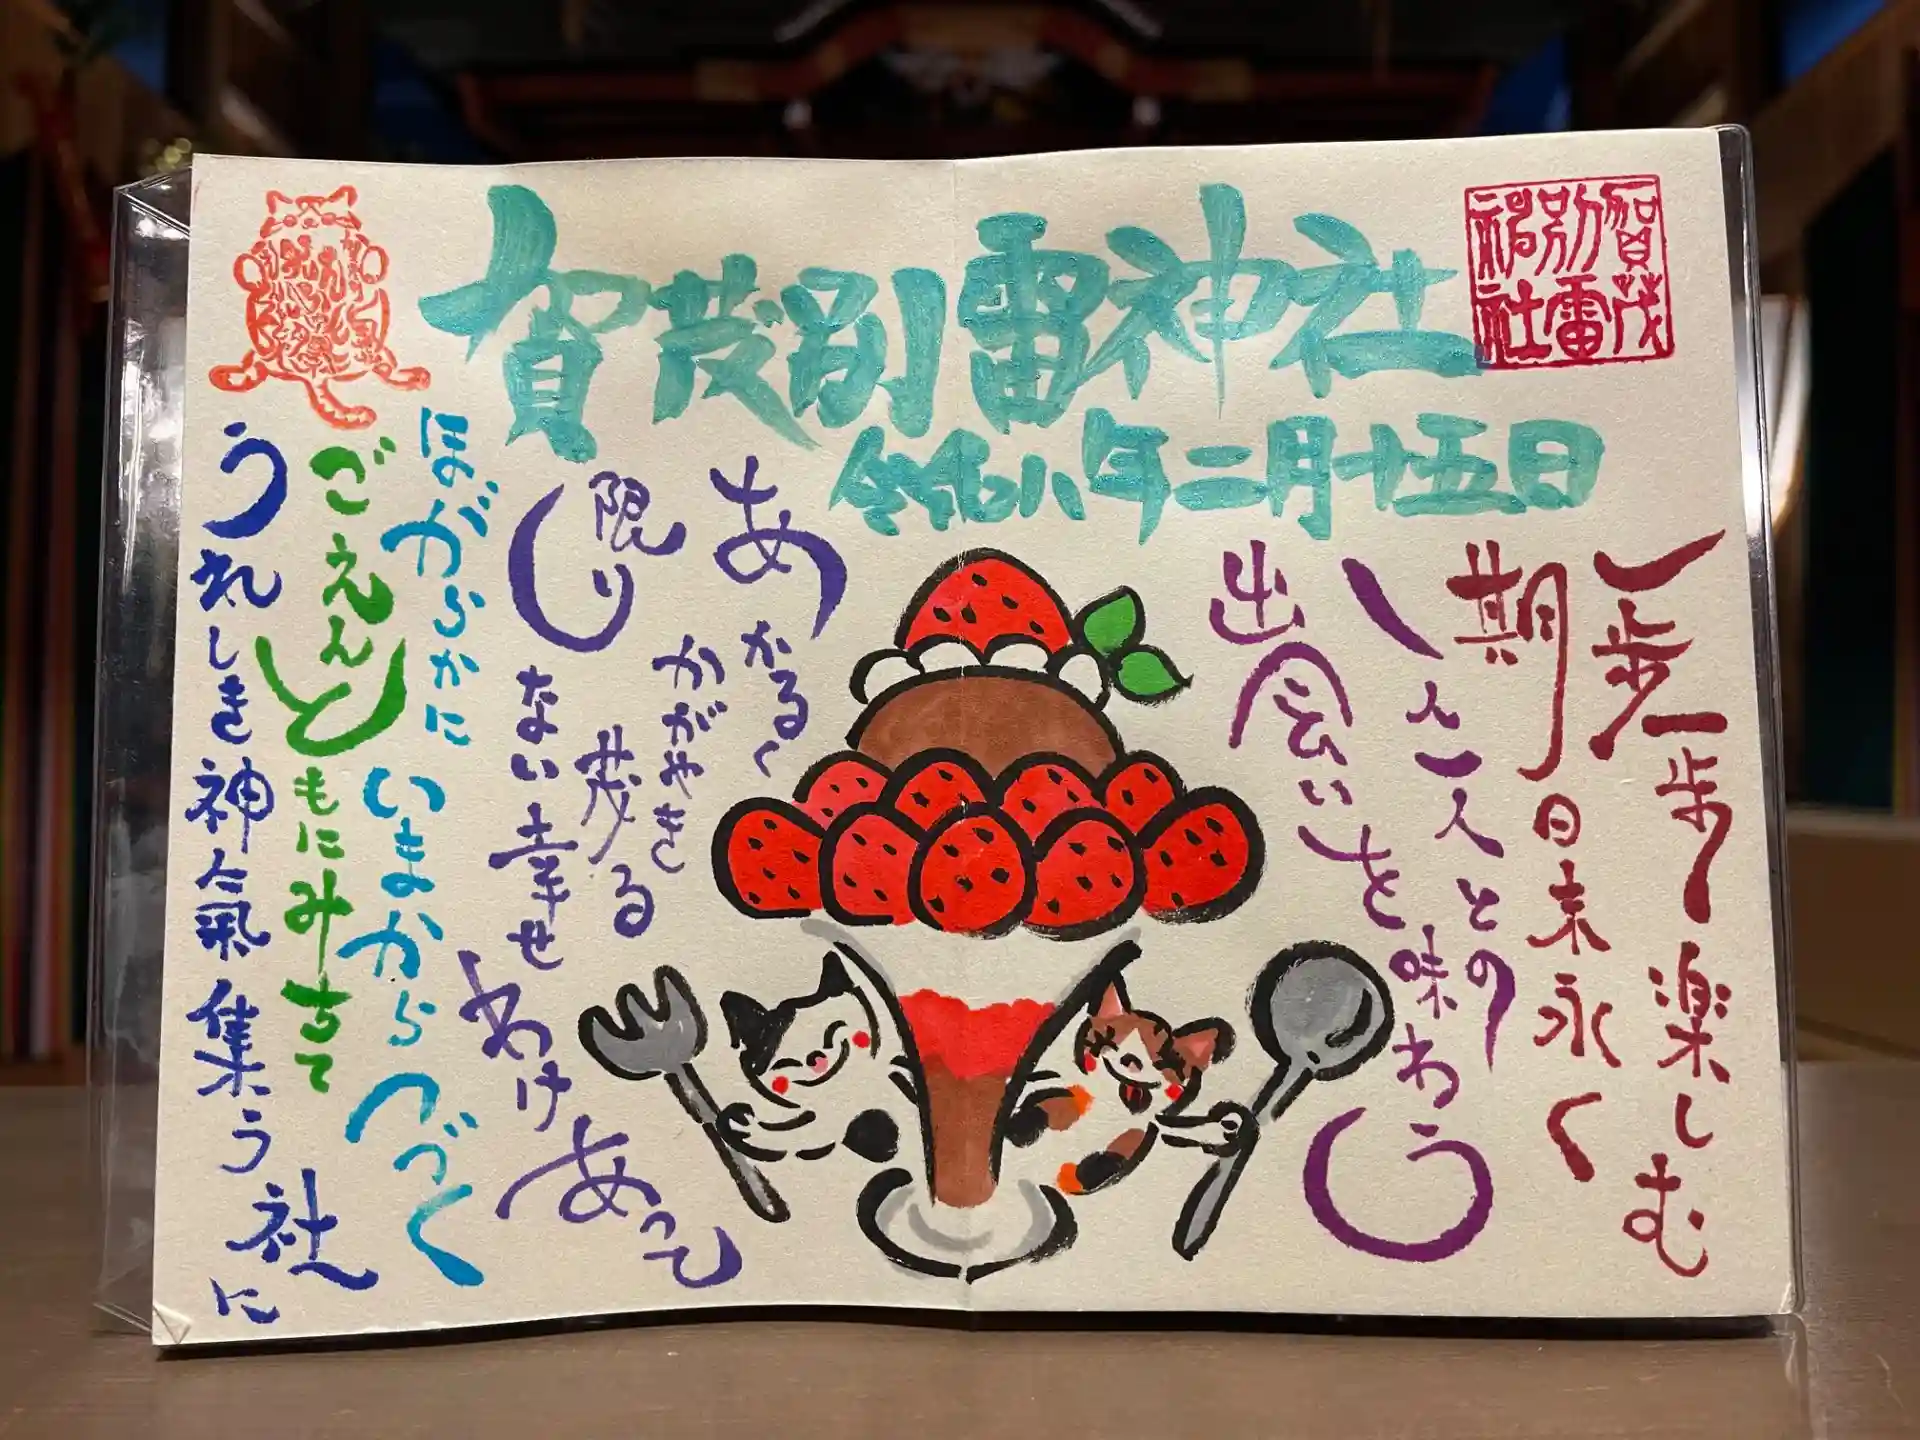 賀茂別雷神社
賀茂
別雷
神社
令和八年二月十五日
一歩一歩楽しむ
期日末永く
一人一人との
出会いを味わう
あかるく
かがやき
茂る
限りない幸せ
わけあって
ほがらかにいまからつづく
ごえんともにみちて
うれしき神氣集う社に